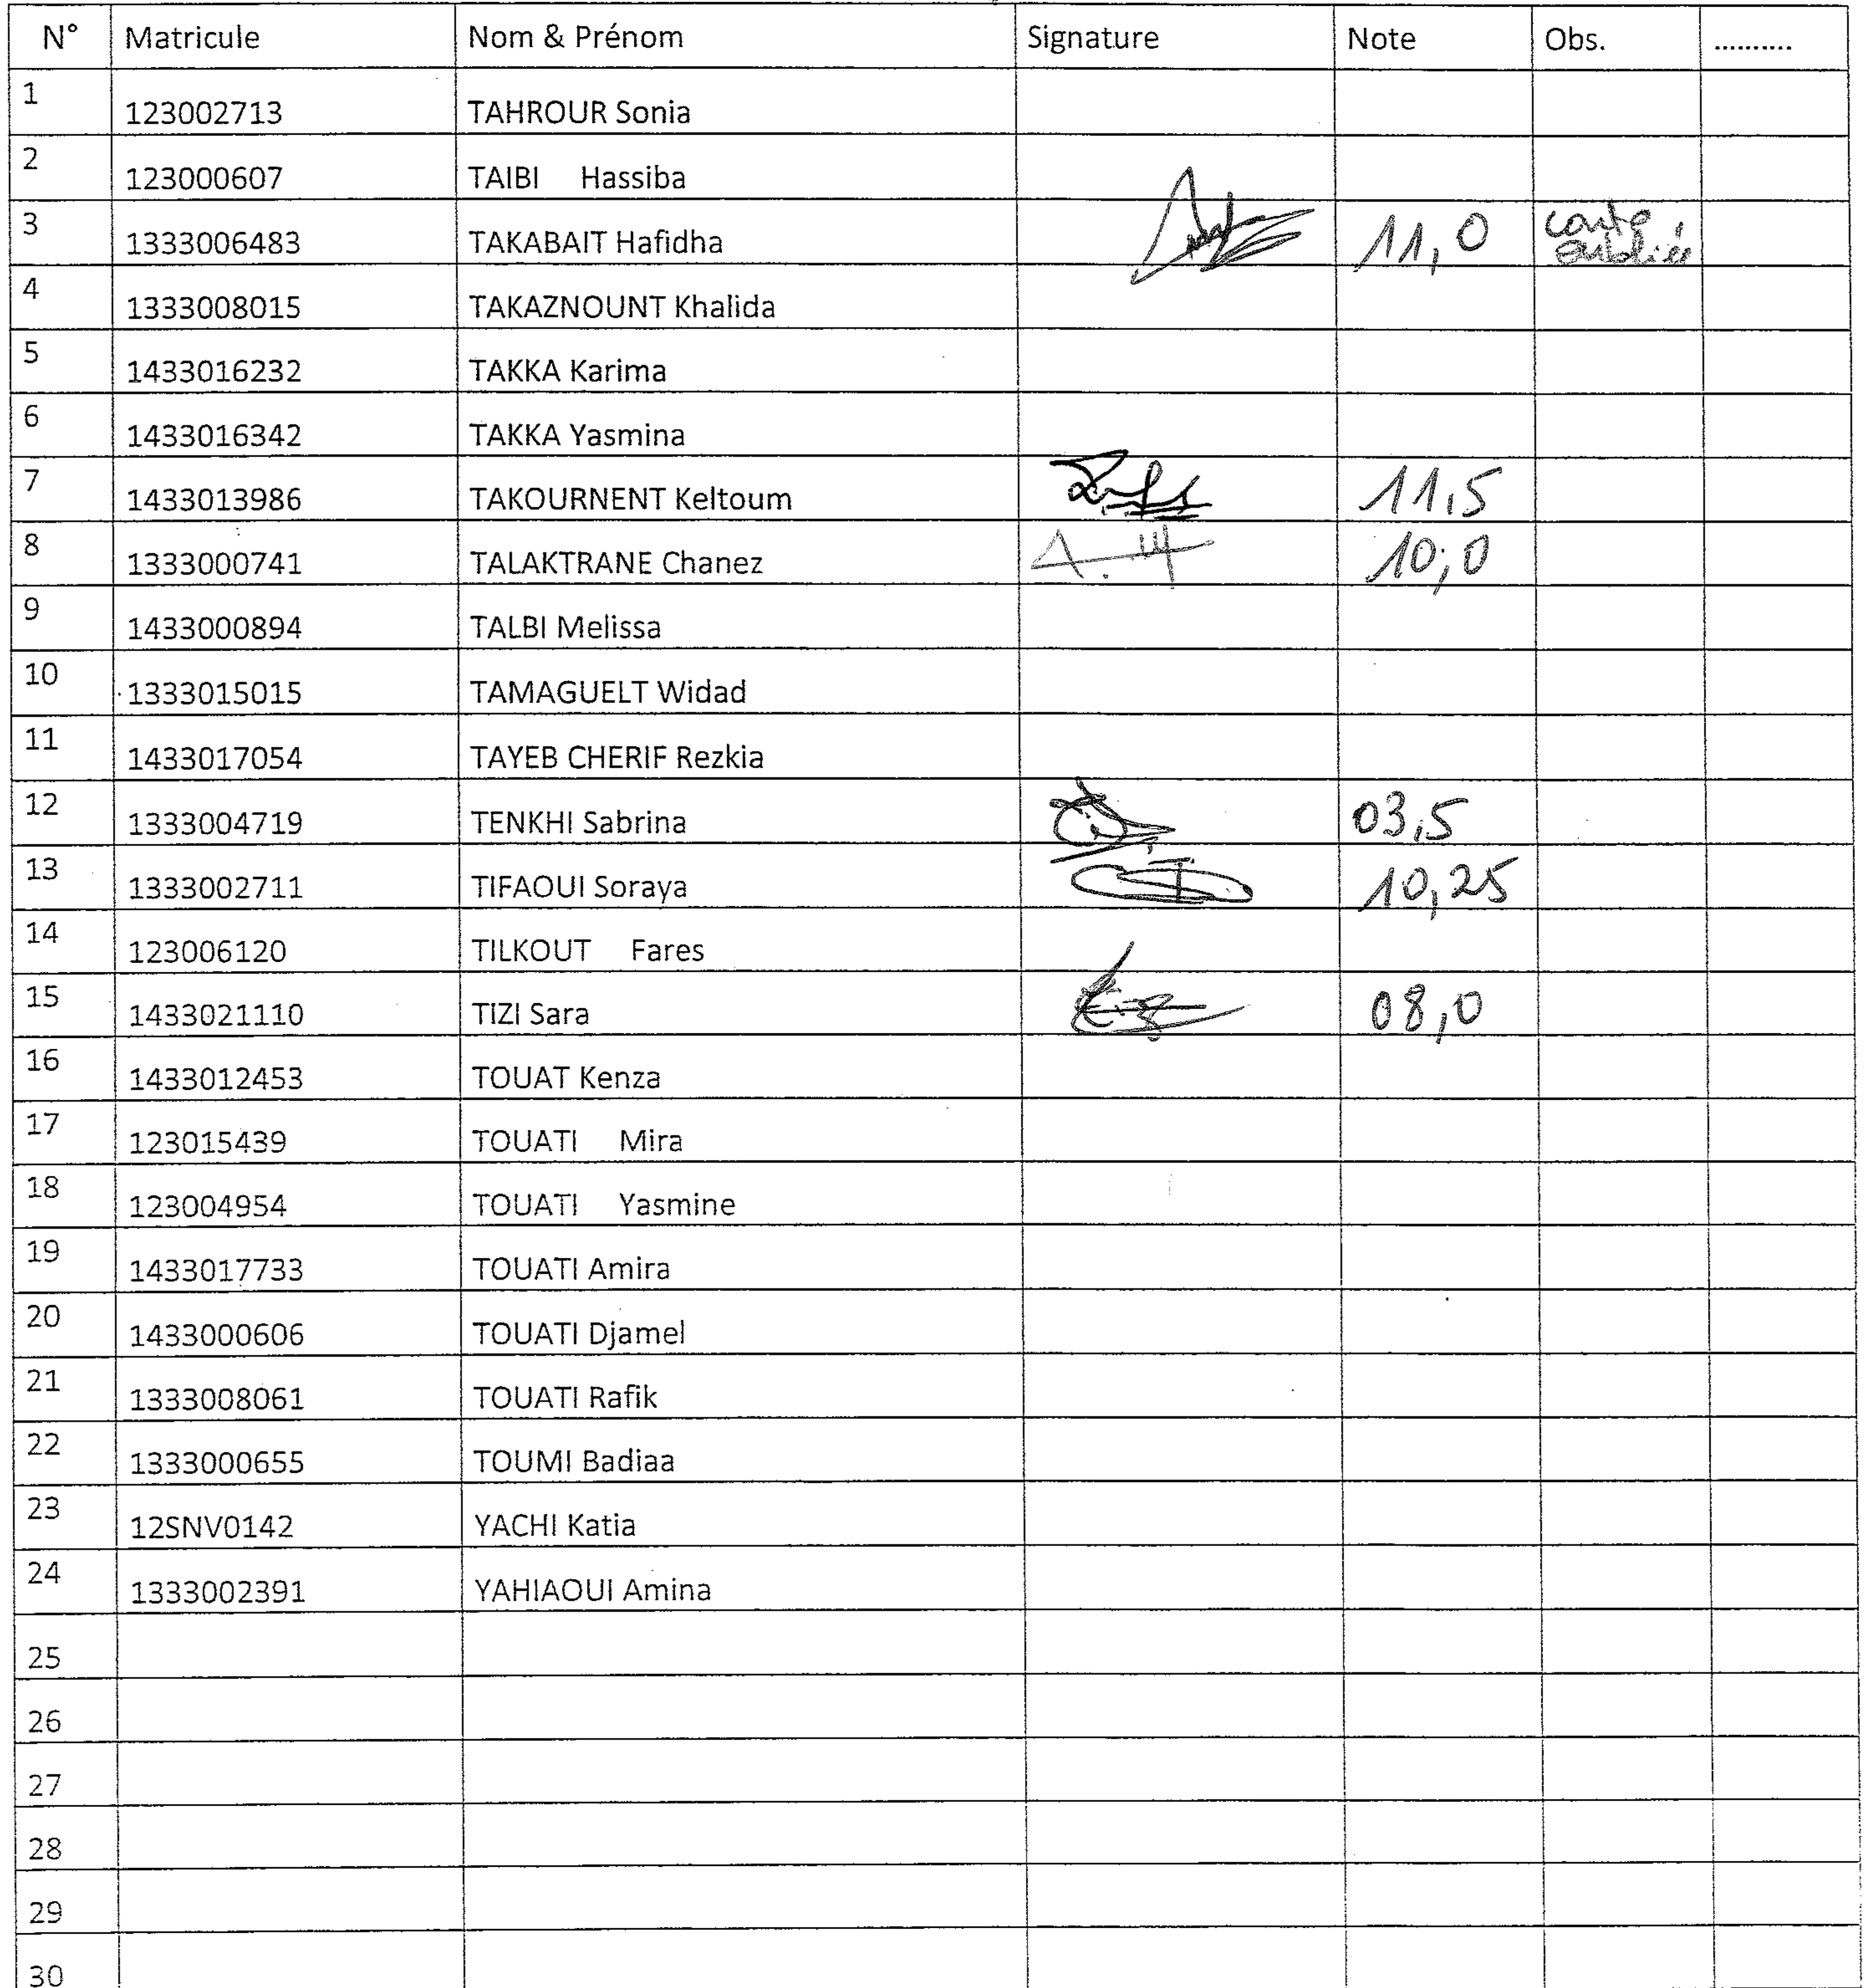 N° Matricule Nom & Prénom Signature Note Obs. ..........
1 123002713 TAHROUR Sonia
2 123000607 TAIBI Hassiba
3 1333006483 TAKABAIT Hafidha 11,0 carte oubliée
4 1333008015 TAKAZNOUNT Khalida
5 1433016232 TAKKA Karima
6 1433016342 TAKKA Yasmina
7 1433013986 TAKOURNENT Keltoum 11,5
8 1333000741 TALAKTRANE Chanez 10,0
9 1433000894 TALBI Melissa
10 1333015015 TAMAGUELT Widad
11 1433017054 TAYEB CHERIF Rezkia
12 1333004719 TENKHI Sabrina 03,5
13 1333002711 TIFAOUI Soraya 10,25
14 123006120 TILKOUT Fares
15 1433021110 TIZI Sara 08,0
16 1433012453 TOUAT Kenza
17 123015439 TOUATI Mira
18 123004954 TOUATI Yasmine
19 1433017733 TOUATI Amira
20 1433000606 TOUATI Djamel
21 1333008061 TOUATI Rafik
22 1333000655 TOUMI Badiaa
23 12SNV0142 YACHI Katia
24 1333002391 YAHIAOUI Amina
25
26
27
28
29
30